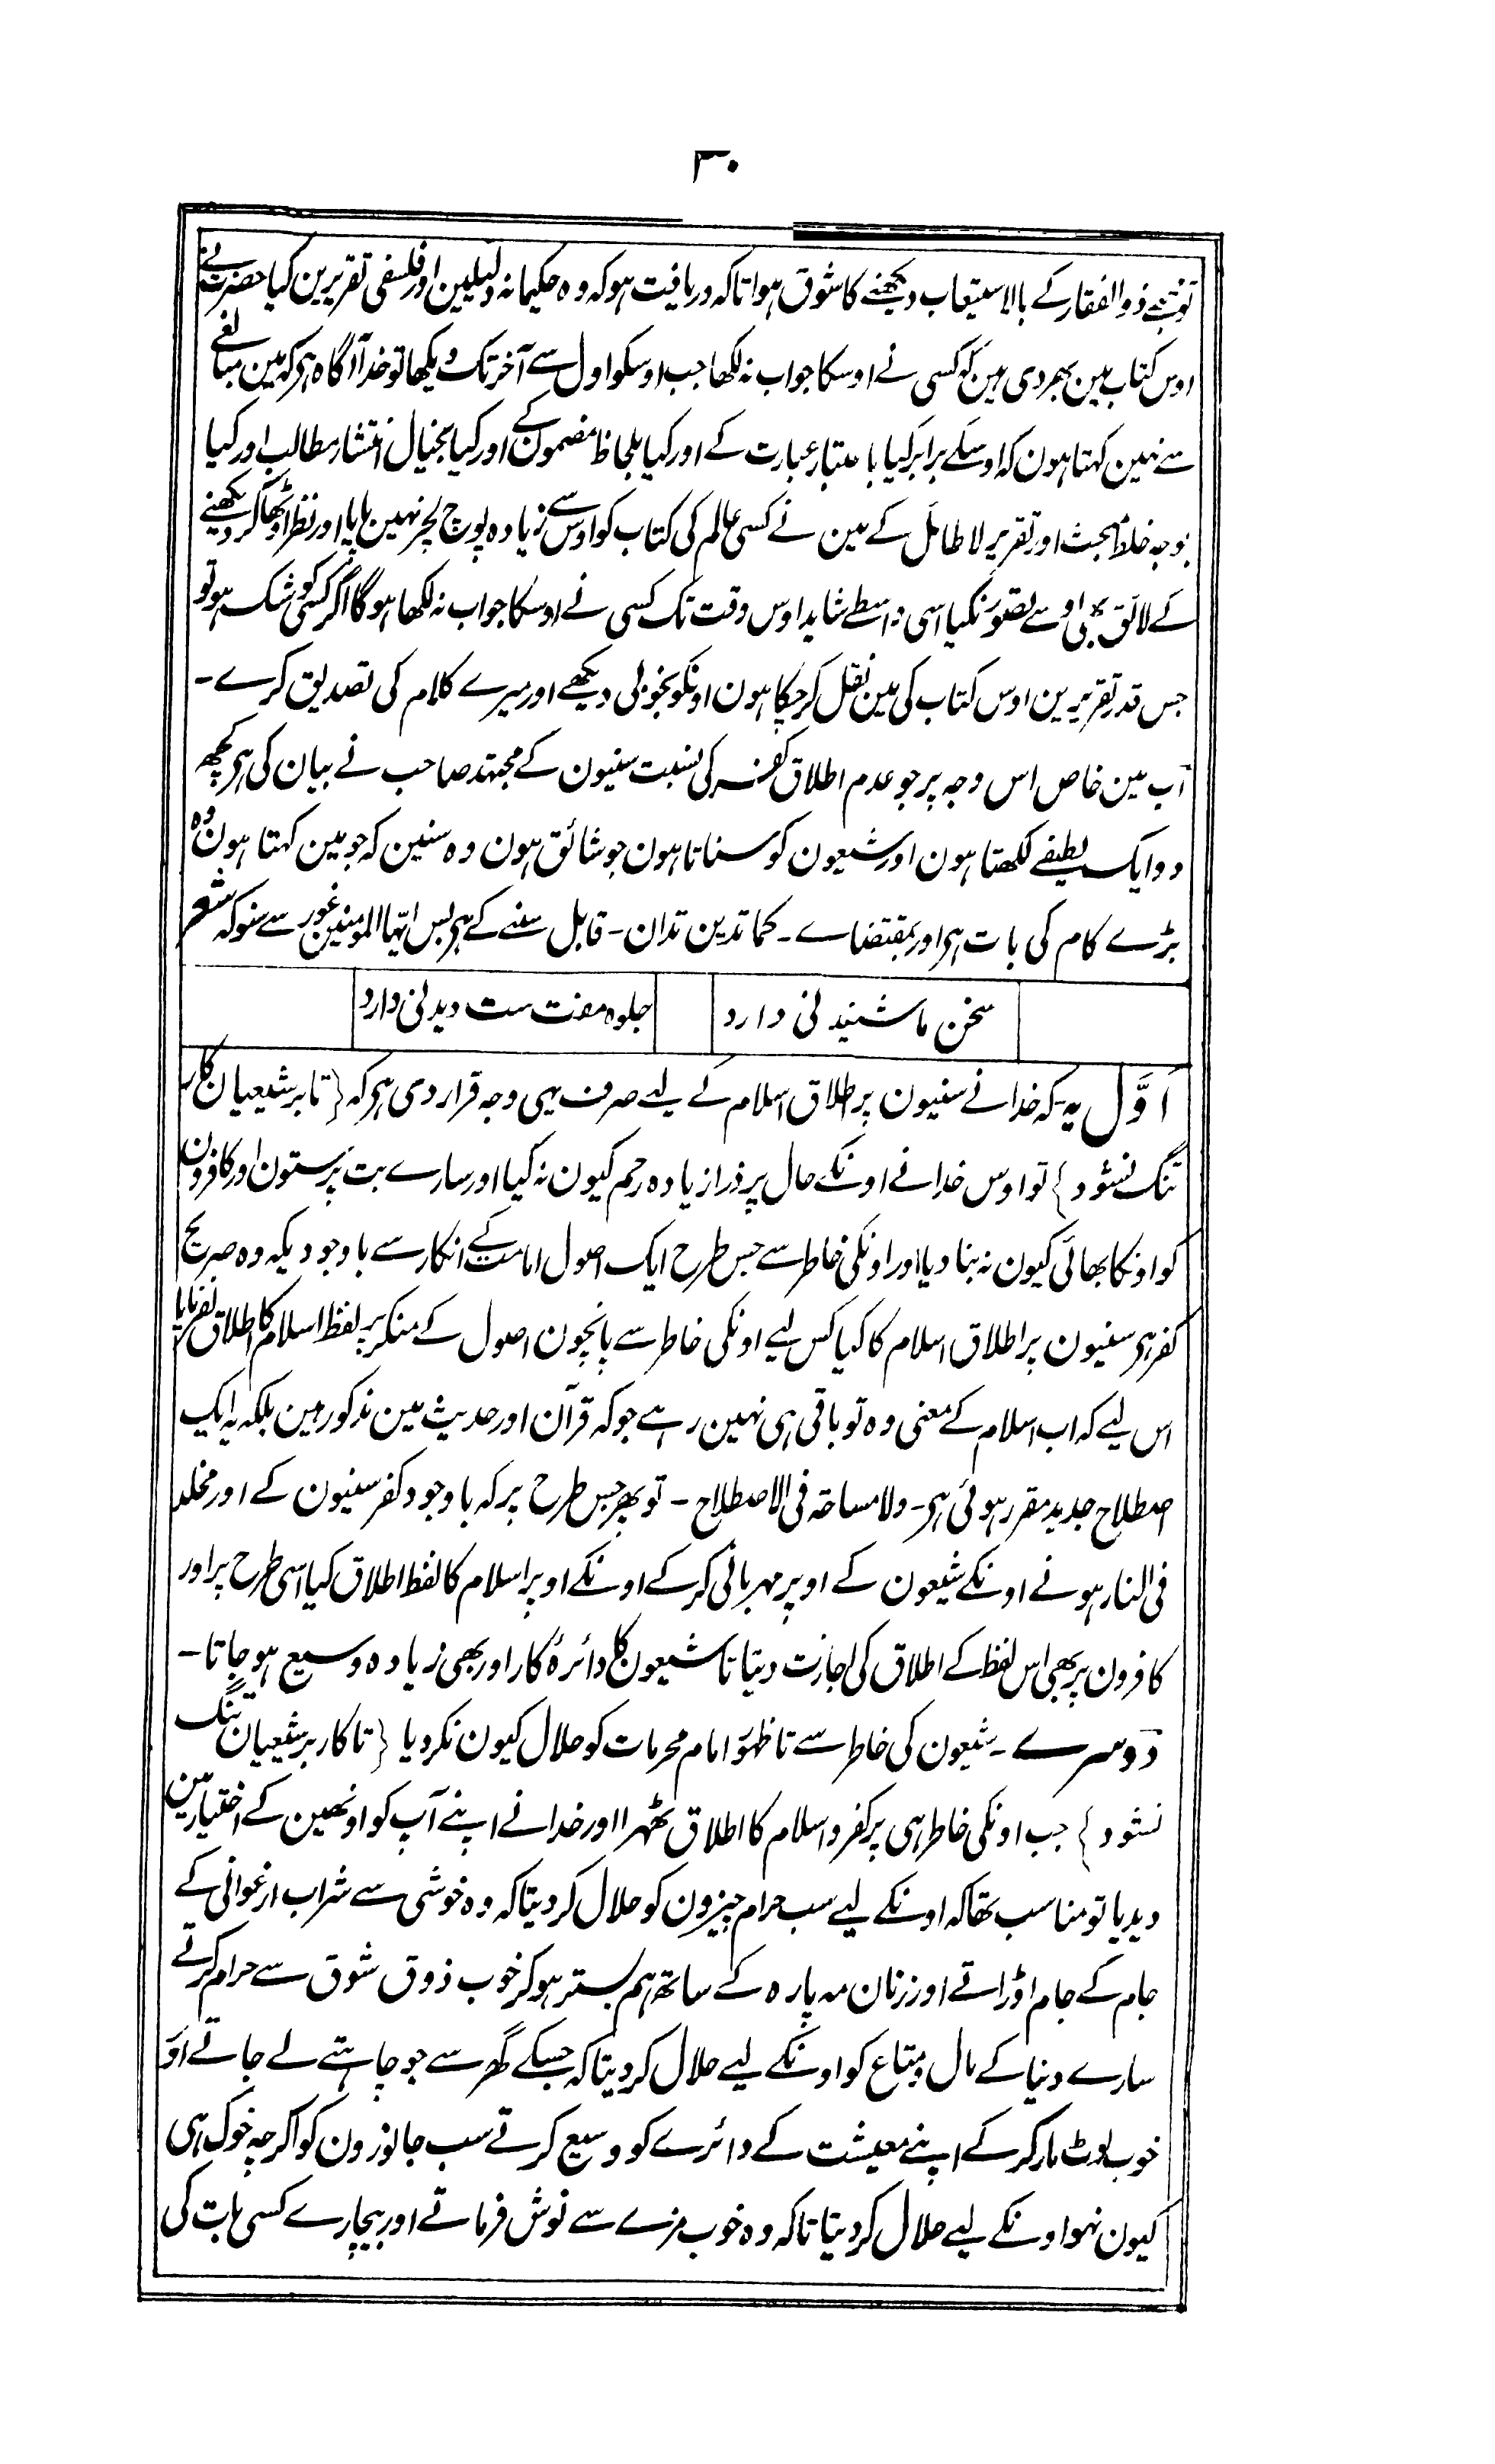 ۳۰
تو مجھے ذوالفقار کے بالاستیعاب دیکھنے کا شوق ہوا تاکہ دریافت ہو کہ وہ حکیمانہ دلیلین اور فلسفی تقریرین کیا حضرت نے
اوس کتاب مین بھر دی ہین کہ کسی نے اوسکا جواب نہ لکھا جب اوسکو اول سے آخر تک دیکھا تو خدا آگاہ ہی کہ مین مبالغے
سے نہین کہتا ہون کہ اوسکے برابر کیا باعتبار عبارت کے اور کیا بلحاظ مضمون کے اور کیا بخیال انتشار مطالب اور کیا
بوجہ خلط مبحث اور تقریر لاطائل کے مین نے کسی عالم کی کتاب کو اوس سے زیادہ پوچ لچر نہین پایا اور نظر اوٹھا کر دیکھنے
کے لائق بھی اوسے تصور نکیا اسی واسطے شاید اوس وقت تک کسی نے اوسکا جواب نہ لکھا ہوگا اگر کسی کو شک ہو تو
جس قدر تقریرین اوس کتاب کی مین نقل کر چکا ہون اونکو بخوبی دیکھے اور میرے کلام کی تصدیق کرے۔
اب مین خاص اس وجہ پر جو عدم اطلاق کفر کی نسبت سنیون کے مجتہد صاحب نے بیان کی ہی کچھ
دو ایک لطیفے لکھتا ہون اور شیعون کو سناتا ہون جو شائق ہون وہ سنین کہ جو مین کہتا ہون وہ
بڑے کام کی بات ہی اور بمقتضاے۔ کما تدین تدان۔ قابل سننے کے ہی بس ایہا المومنین غور سے سنو کہ شعر
سخن ما شنیدنی دارد جلوہ مفت ست دیدنی دارد
اَوَّل یہ۔ کہ خدا نے سنیون پر اطلاق اسلام کے لیے صرف یہی وجہ قرار دی ہی کہ {تا بر شیعیان کار
تنگ نشود} تو اوس خدا نے اونکے حال پر ذرا زیادہ رحم کیون نہ کیا اور سارے بت پرستون اور کافرون
کو اونکا بھائی کیون نہ بنا دیا اور اونکی خاطر سے جس طرح ایک اصول امامت کے انکار سے باوجودیکہ وہ صریح
کفر ہی سنیون پر اطلاق اسلام کا کیا کس لیے اونکی خاطر سے پانچون اصول کے منکر پر لفظ اسلام کا اطلاق نفرمایا
اس لیے کہ اب اسلام کے معنی وہ تو باقی ہی نہین رہے جو کہ قرآن اور حدیث مین مذکور ہین بلکہ یہ ایک
اصطلاح جدید مقرر ہوئی ہی۔ ولا مساحۃ فی الاصطلاح۔ تو پھر جس طرح پر کہ باوجود کفر سنیون کے اور مخلد
فی النار ہونے اونکے شیعون کے اوپر مہربانی کر کے اونکے اوپر اسلام کا لفظ اطلاق کیا اسی طرح پر اور
کافرون پر بھی اس لفظ کے اطلاق کی اجازت دیتا تا شیعون کا دائرۂ کار اور بھی زیادہ وسیع ہو جاتا۔
دوسرے۔ شیعون کی خاطر سے تا ظہور امام محرمات کو حلال کیون نکردیا {تا کار بر شیعیان تنگ
نشود} جب اونکی خاطر ہی پر کفر و اسلام کا اطلاق ٹھہرا اور خدا نے اپنے آپ کو اونھین کے اختیار مین
دیدیا تو مناسب تھا کہ اونکے لیے سب حرام چیزون کو حلال کر دیتا کہ وہ خوشی سے شراب ارغوانی کے
جام کے جام اوڑاتے اور زنان مہ پارہ کے ساتھ ہم بستر ہو کر خوب ذوق شوق سے حرام کرتے
سارے دنیا کے مال و متاع کو اونکے لیے حلال کر دیتا کہ جسکے گھر سے جو چاہتے لے جاتے اور
خوب لوٹ مار کر کے اپنے معیشت کے دائرے کو وسیع کرتے سب جانورون کو اگرچہ خوک ہی
کیون نہو اونکے لیے حلال کر دیتا تاکہ وہ خوب مزے سے نوش فرماتے اور بیچارے کسی بات کی